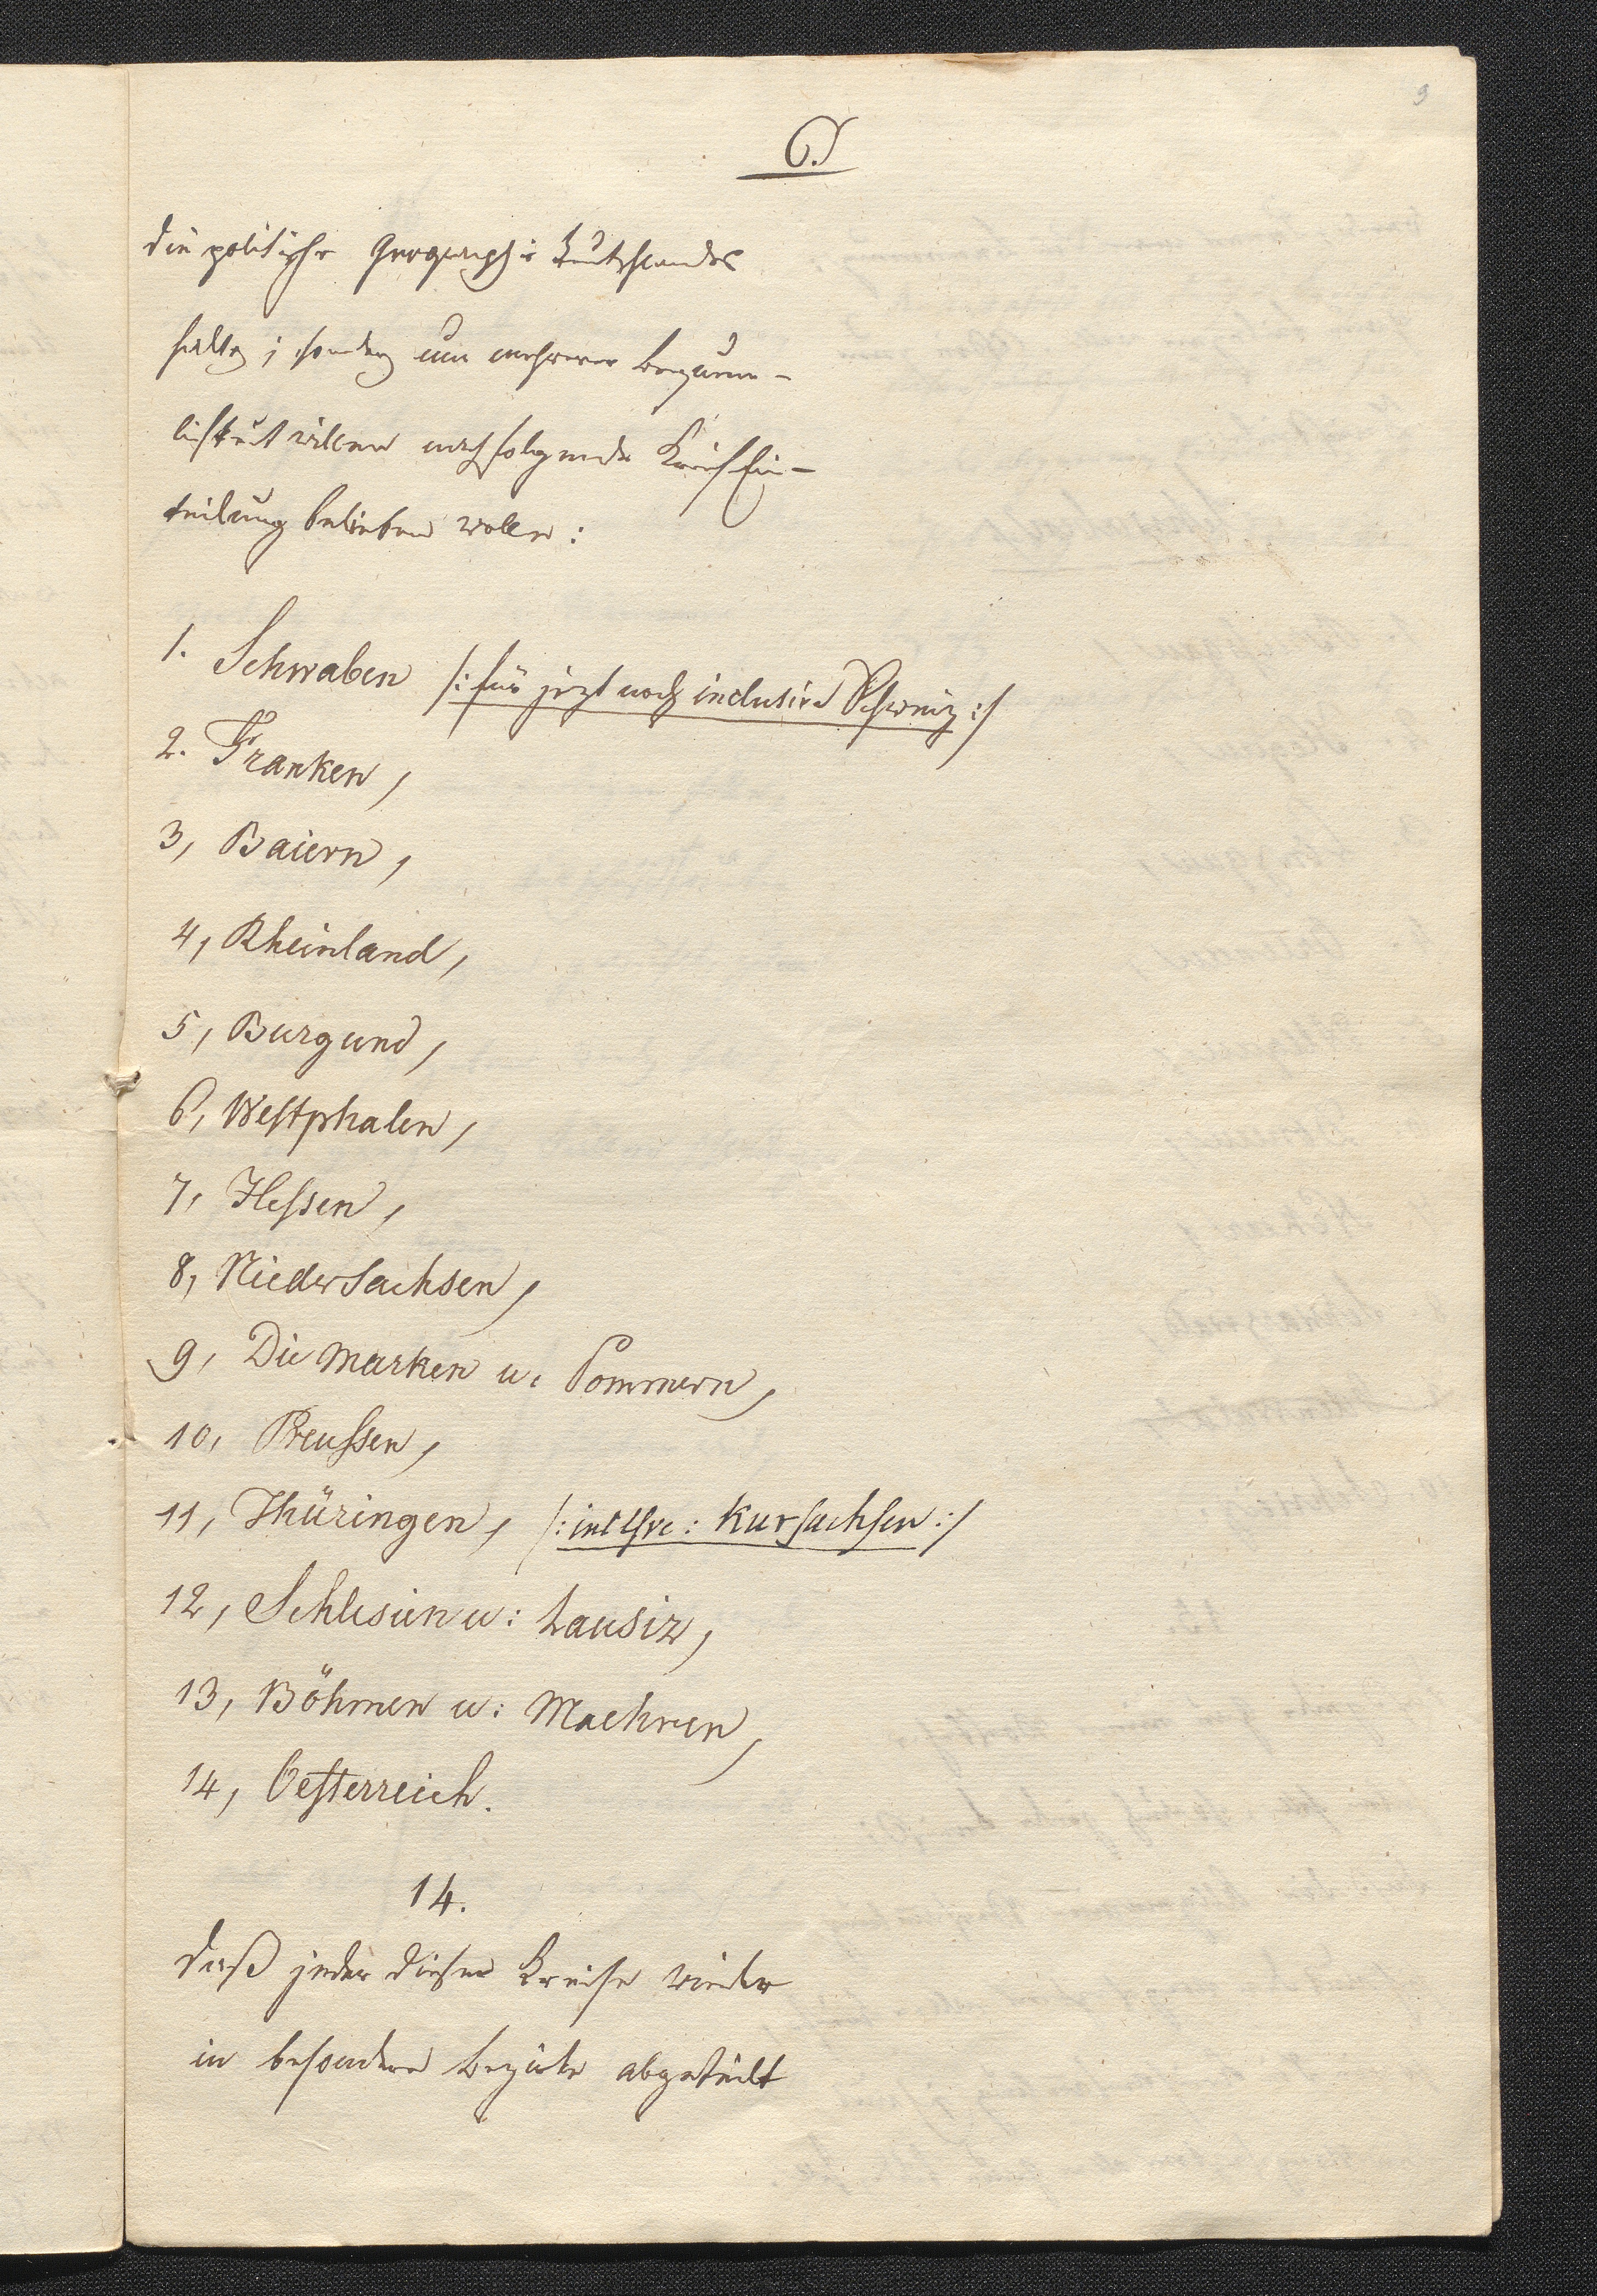 9
6.
die politische Geographie Deutschlandes
halte; sondern um mehrerer bequem-
lichkeit willen nachfolgende KreisEin-
teilung belieben wolle:
1. Schwaben /: für jezt noch inclusive Schweiz :/
2. Franken,
3, Baiern,
4, Rheinland,
5, Burgund,
6, Westphalen,
7, Hessen,
8, NiederSachsen,
9, Die Marken u. Pommern,
10, Preussen,
11, Thüringen, /: inclusve: Kursachsen :/
12, Schlesien u: Lausiz,
13, Böhmen u: Maehren,
14, Oesterreich.
14.
daß jeder dieser Kreise wieder
in besondere bezirke abgeteilt